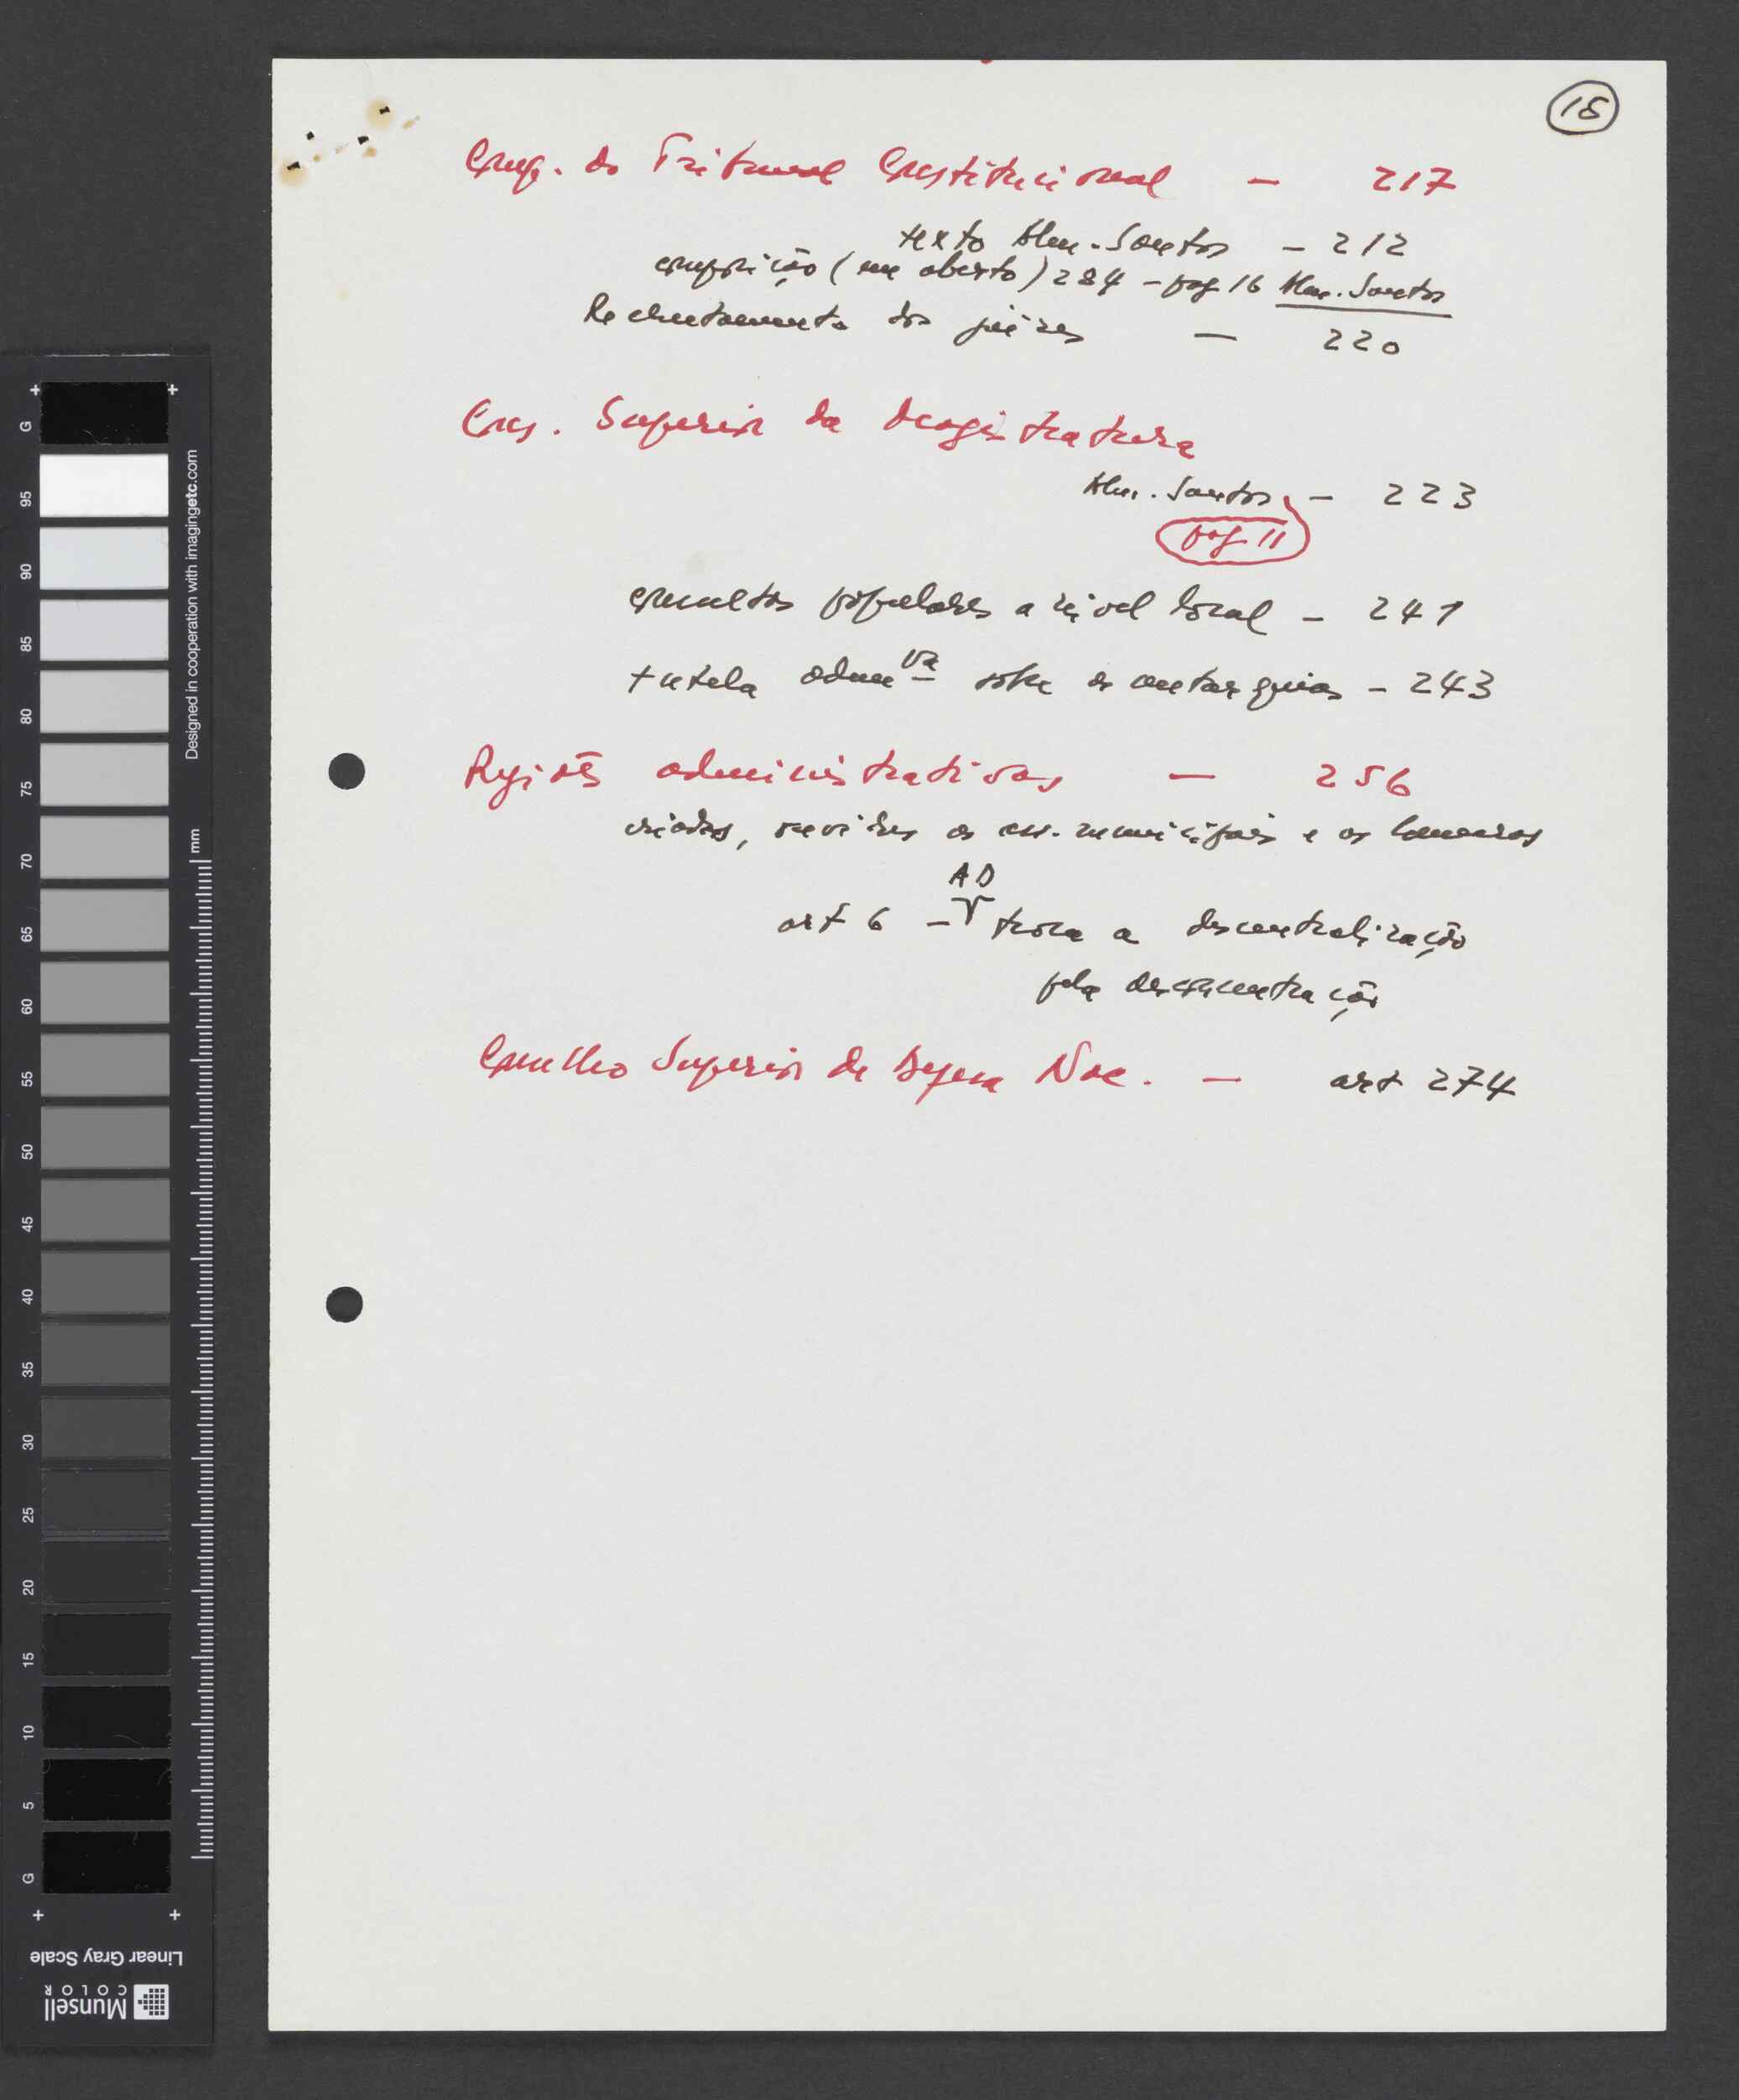 18
Comp. do Tribunal Constitucional — 217
texto Alm. Santos — 212
composição (em aberto) 284 — pag 16 Alm. Santos
Recrutamento dos juízes — 220
Cons. Superior da Magistratura
Alm. Santos — 223
pag 11
consultas populares a nível local — 241
tutela admin va sobre as autarquias — 243
Regiões administrativas — 256
criadas, ouvidas as ass. municipais e as camaras
AD
art 6 — troca a descentralização
pela desconcentração
Conselho Superior de Defesa Nac. — art 274
G
95
90
85
80
75
70
65
60
55
50
45
40
35
30
25
20
15
10
5
G
Designed in cooperation with imagingetc.com
mm
Linear Gray Scale
Munsell
COLOR